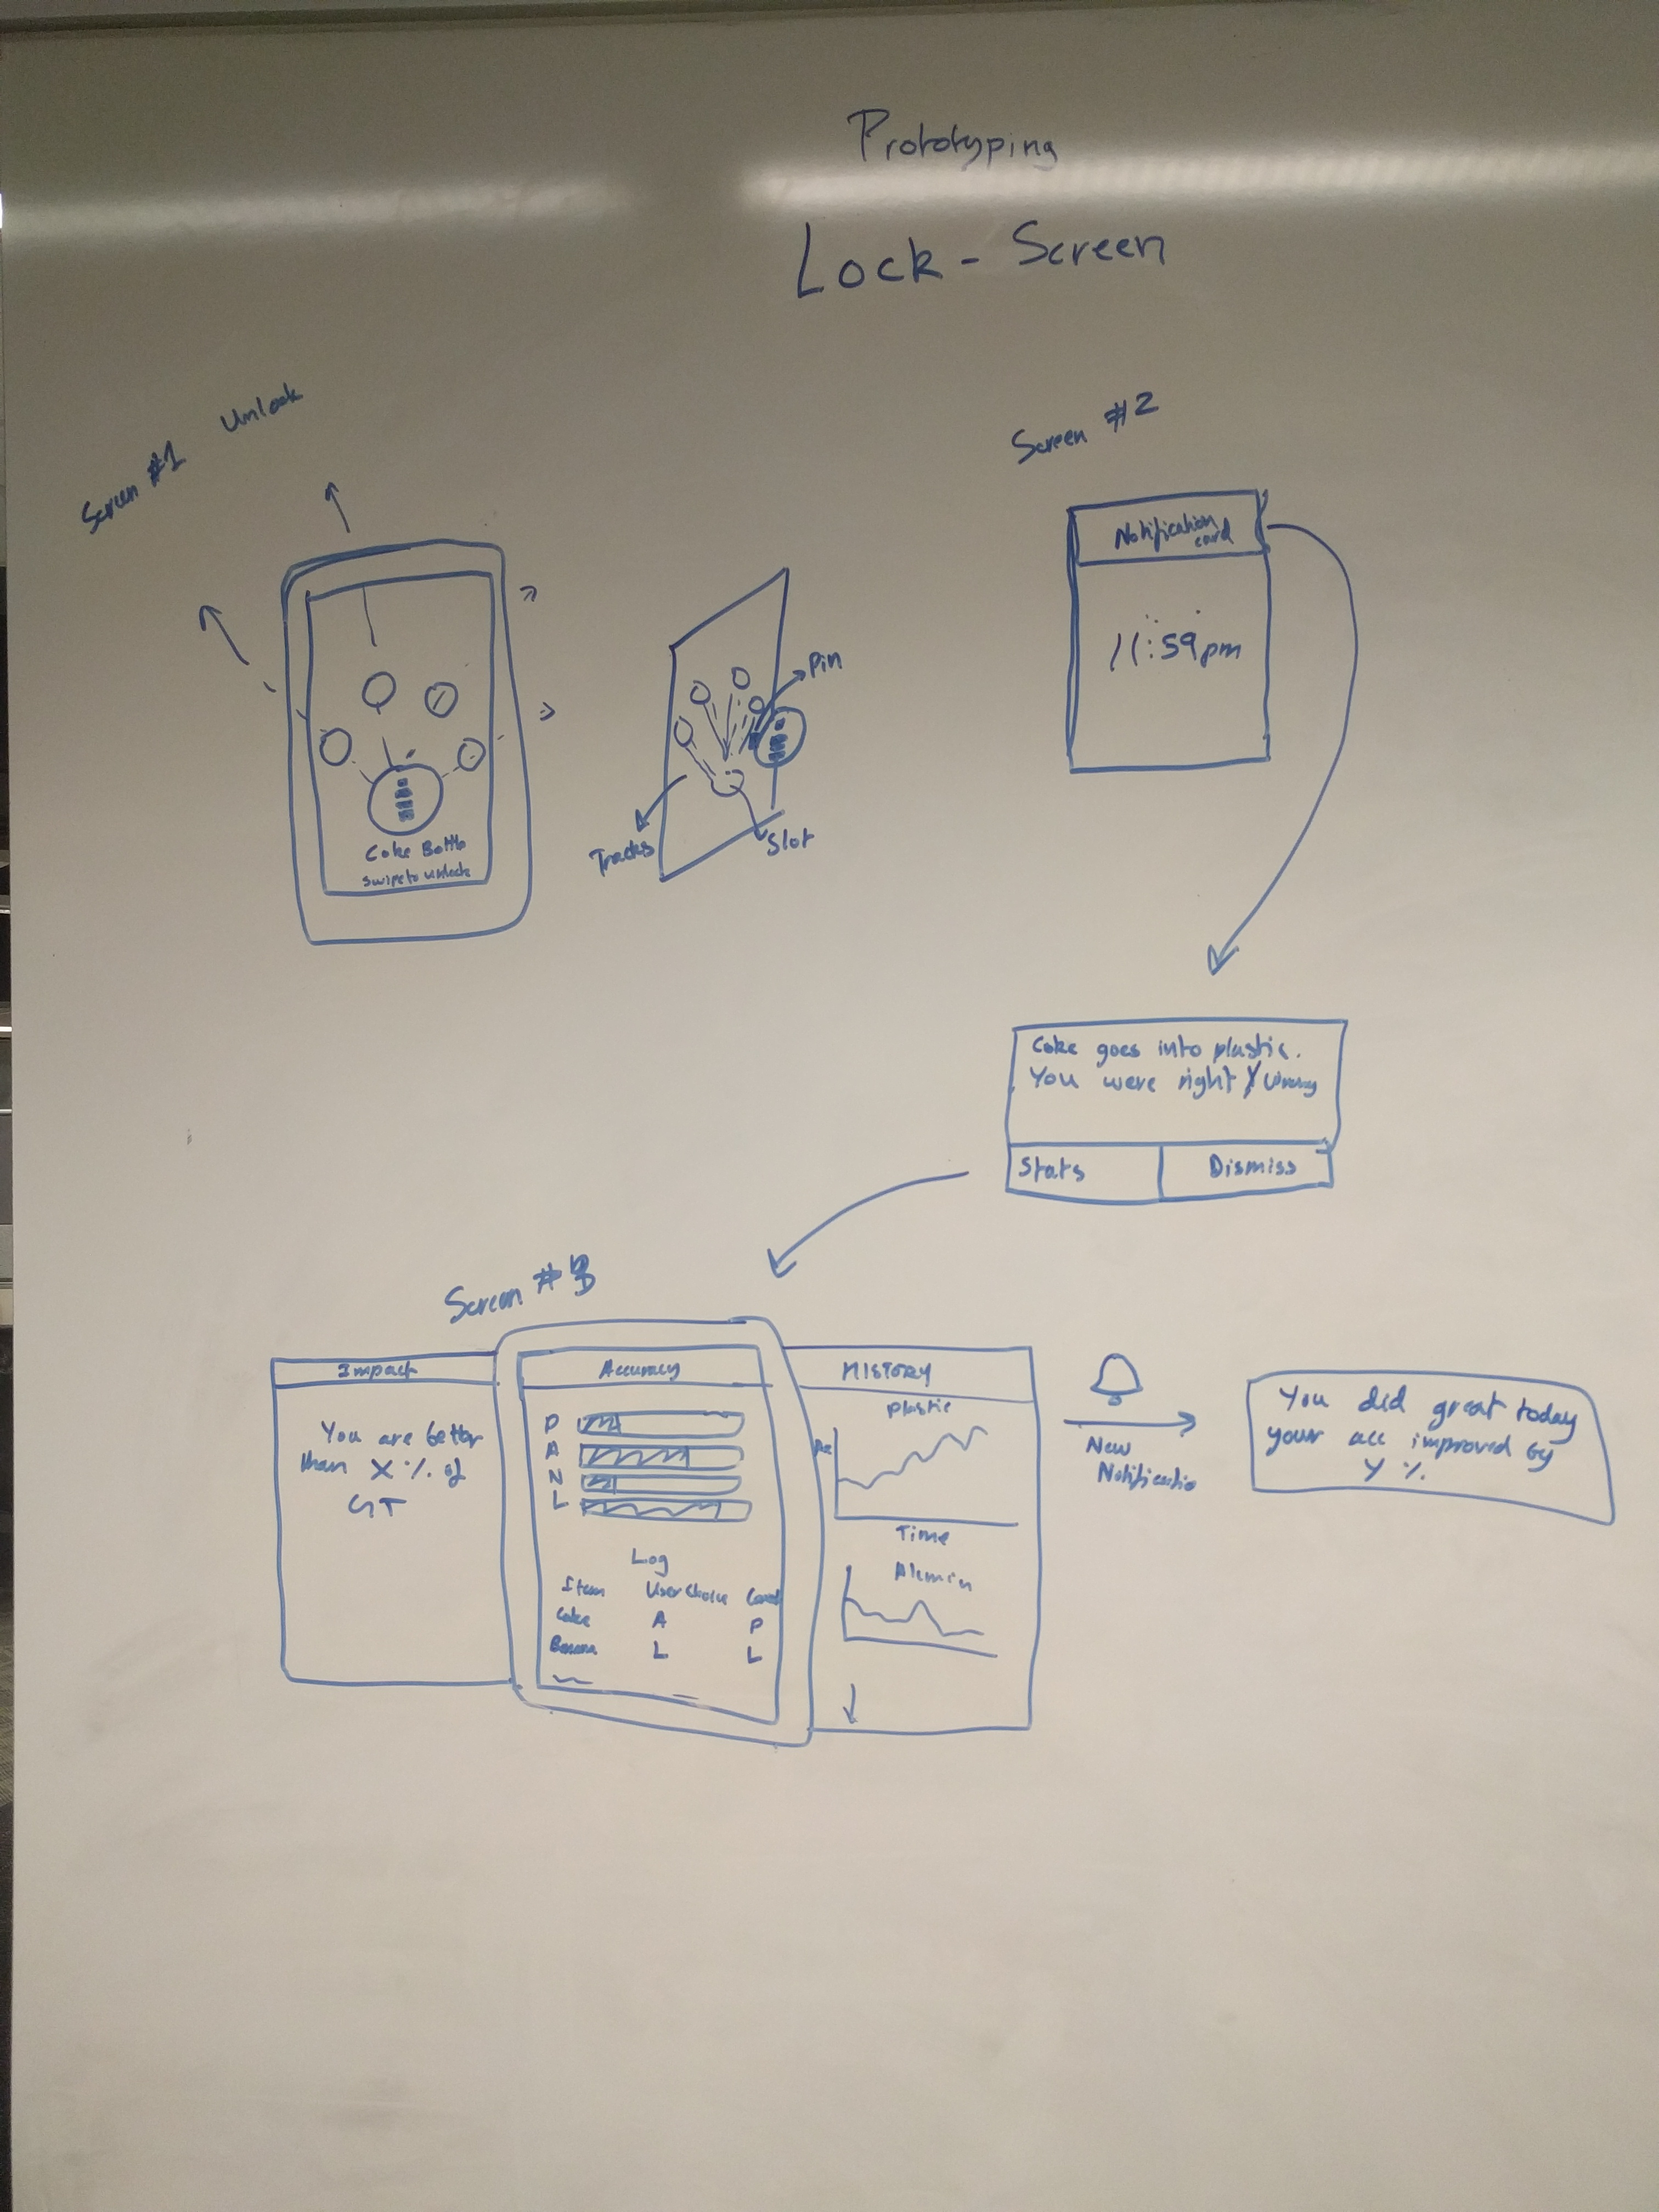 Prototyping
Lock - Screen
Screen #1 Unlock
Coke Bottle
Swipe to unlock
Pin
Tracks
Slot
Screen #2
Notification
card
11:59pm
Coke goes into plastic.
You were right / wrong
Stats
Dismiss
Screen #3
Impact
You are better
than X % of
GT
Accuracy
P
A
N
L
Log
Item User Choice
Coke A P
Banana L L
HISTORY
Plastic
Time
Alumin
New
Notificatio
You did great today
your acc improved by
Y %.